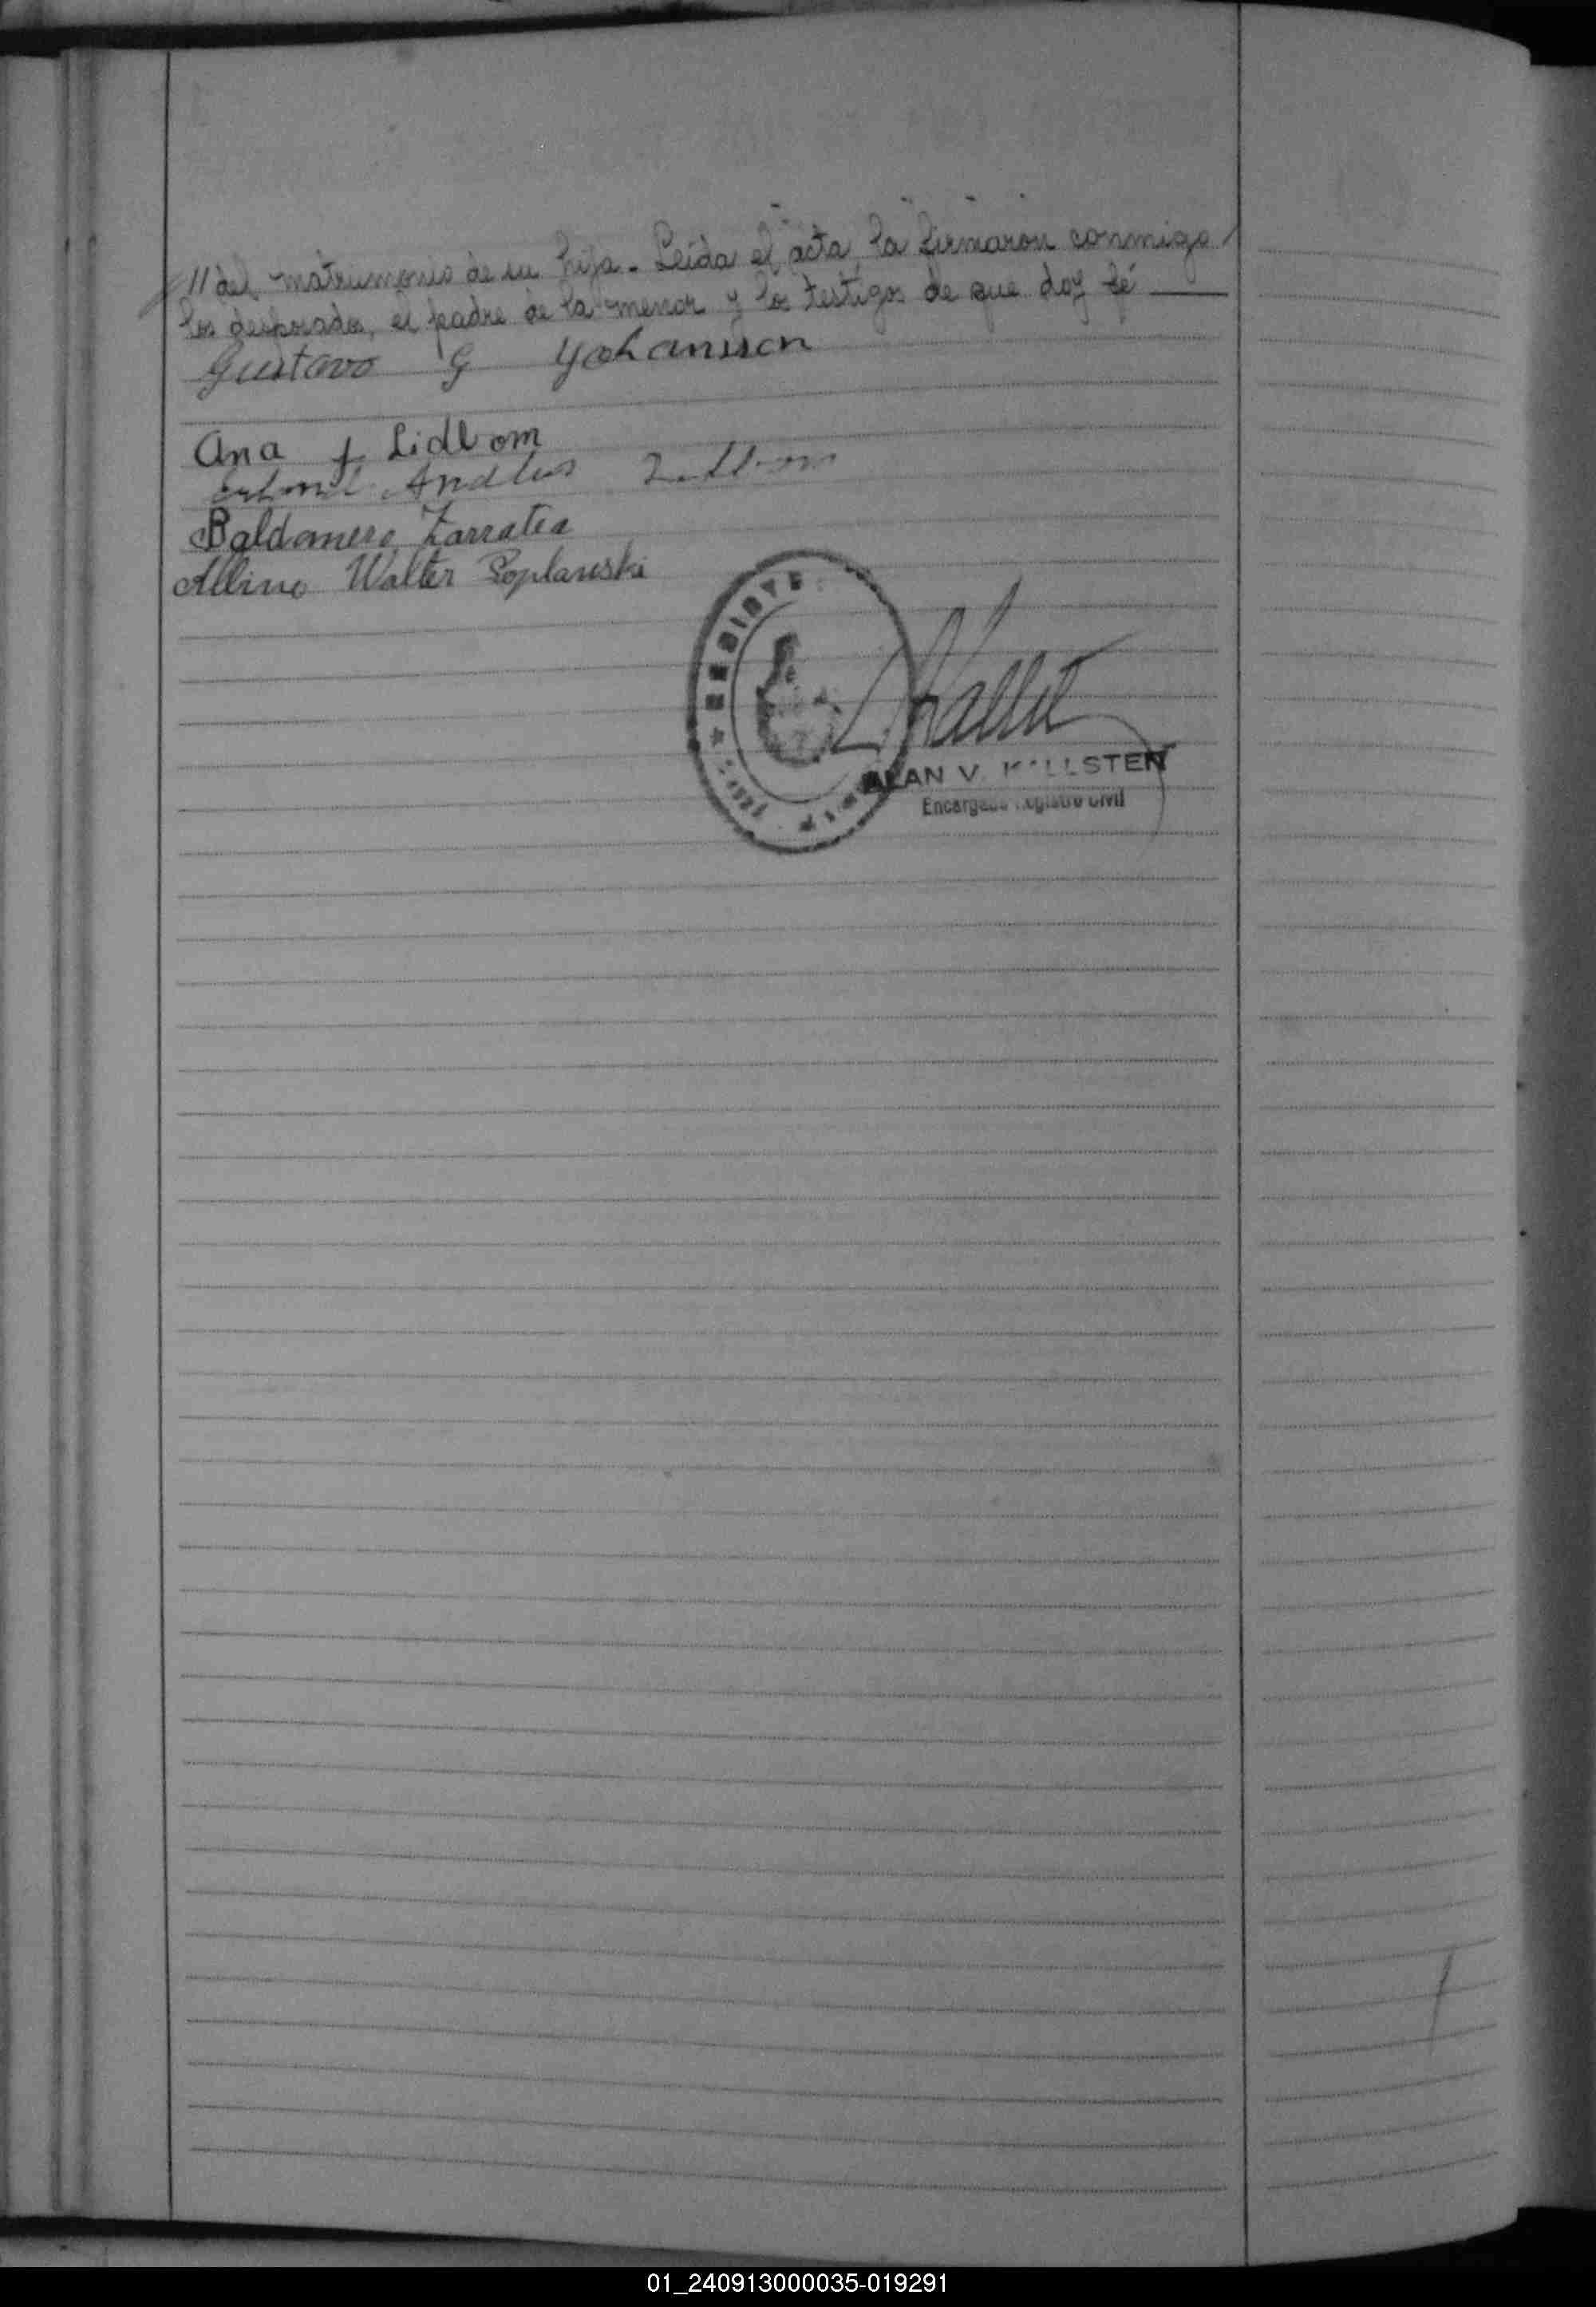 // del matrimonio de su hija. Leída el acta, la firmaron conmigo
los desposados, el padre de la menor y los testigos de que doy fé
Gustavo G Yohansson
Ana f Lidbom
Baldomero Zarratea
Albino Walter Poplawski
REGISTR
ALAN V. KALLSTEN
Encargado Registro Civil
01_240913000035-019291